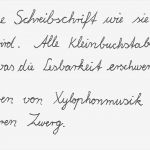 e Schreibschrift wie sie
ird. Alle Kleinbuchstab
as die Lesbarkeit erschwer
en von Xylophonmusik
ren Zwerg.